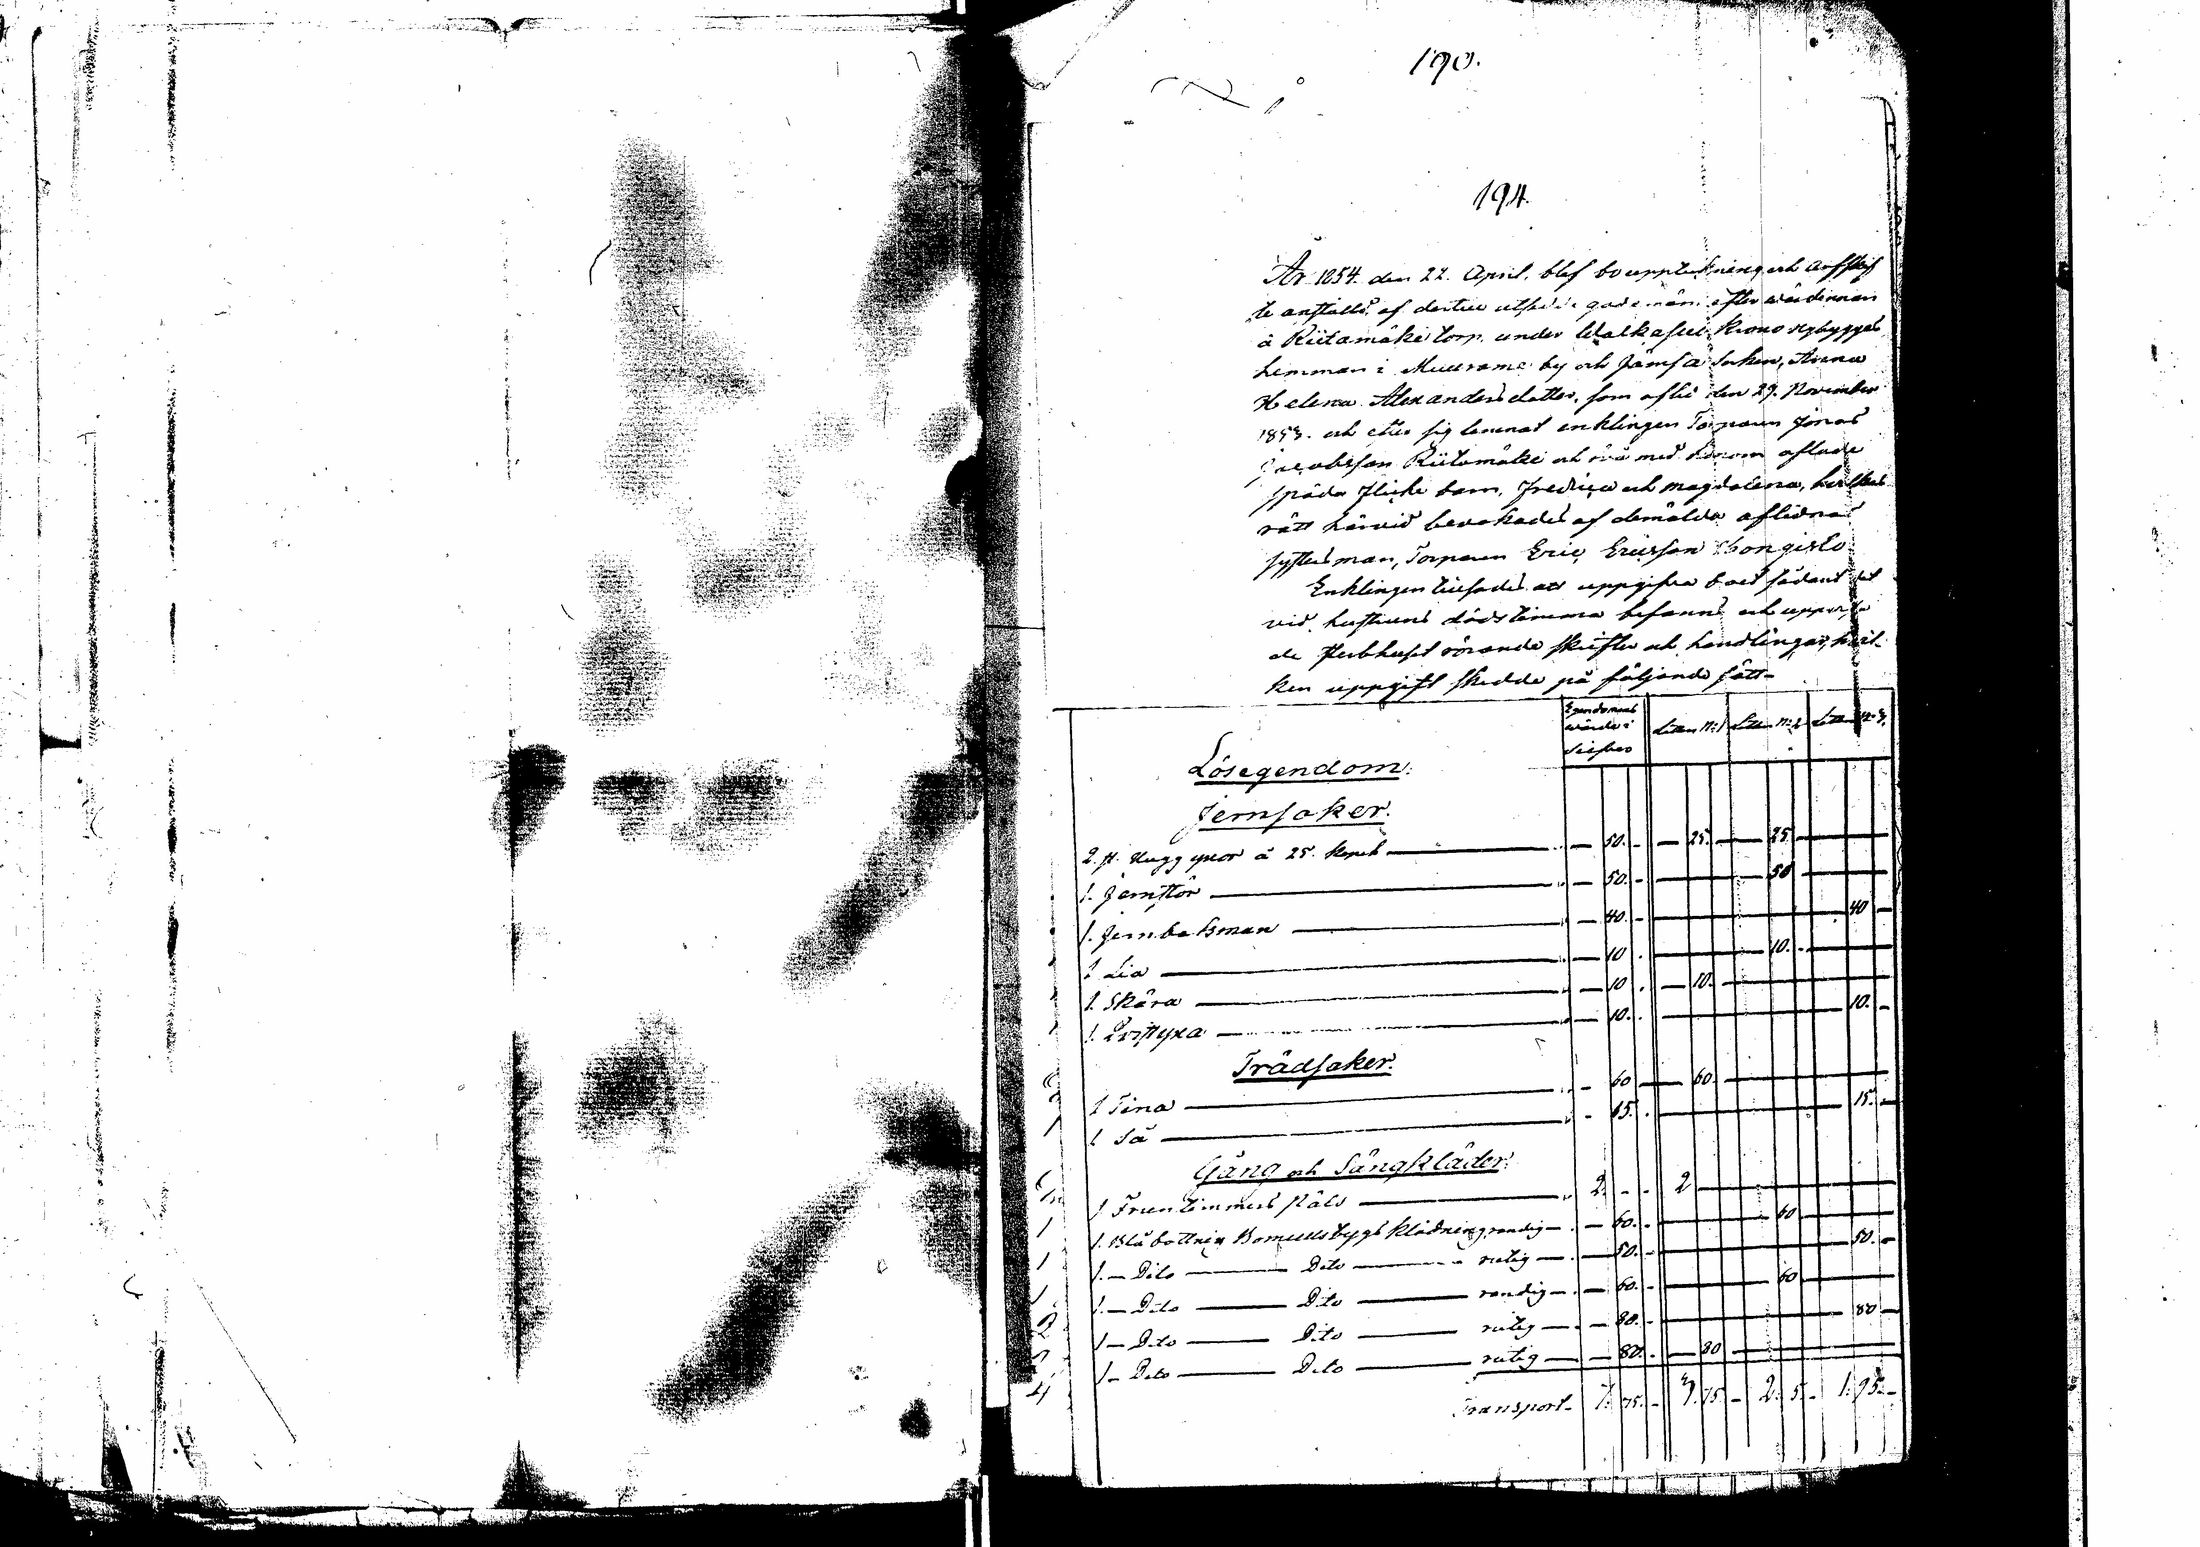 190.
194.
År 1854. den 22. April. blef bouppteckning och arfskif
te anstäldt af dertill utsedde gode män efter värdinnan
å Riitamäki torp under Walkasuu krono nybygges
hemman i Muurame by och Jämsä Socken, Anna
Helena Alexandersdotter, som afled den 29. November
1853. och efter sig lemnat enklingen Torparen Jonas
Jacobsson Riitamäki och två med honom aflade
späda flicke barn, Fredrica och Magdalena, hvilkas
rätt härvid bevakades af aflidnas
systersman, Torparen Eric Ericsson
Enklingen tillsades att uppgifva boet sådant det
vid hustruns dödstimma befanns och uppvisa
de sterbhuset rörande skrifter och handlingar, hvil-
ken uppgift skedde på följande sätt-
Egendomens
värde i
Silfver
Litten N:1 Litt. N:2 Litt. N:3.
Lösegendom.
Jernsaker.
2. st. Huggyxor á 25. kopek — 50. — 25. — 25
1. Jernstör — 50. — 50
1. Jernbesman — 40. — 40
1 Lia — 10 — 10.
1. Skära — 10 — 10.
1. Qvistyxa — 10. — 10.
Trädsaker.
1 Tina — 60 — 60
1 Så — 15. — 15.
Gång och Sängkläder.
1 Fruntimmers päls — 2. - - 2
1. Blå bottnig Bomullstygs klädning, randig — 60. — 60
1. — Dito — Dito — rutig — 50. — 50.
1. — Dito — Dito — randig — 60. — 60
1 — Dito — Dito — rutig — 80. — 80
1 — Dito — Dito — rutig — 80. — 80
Transport- 7. 75. - 3. 75 - 2. 5 - 1. 95. -